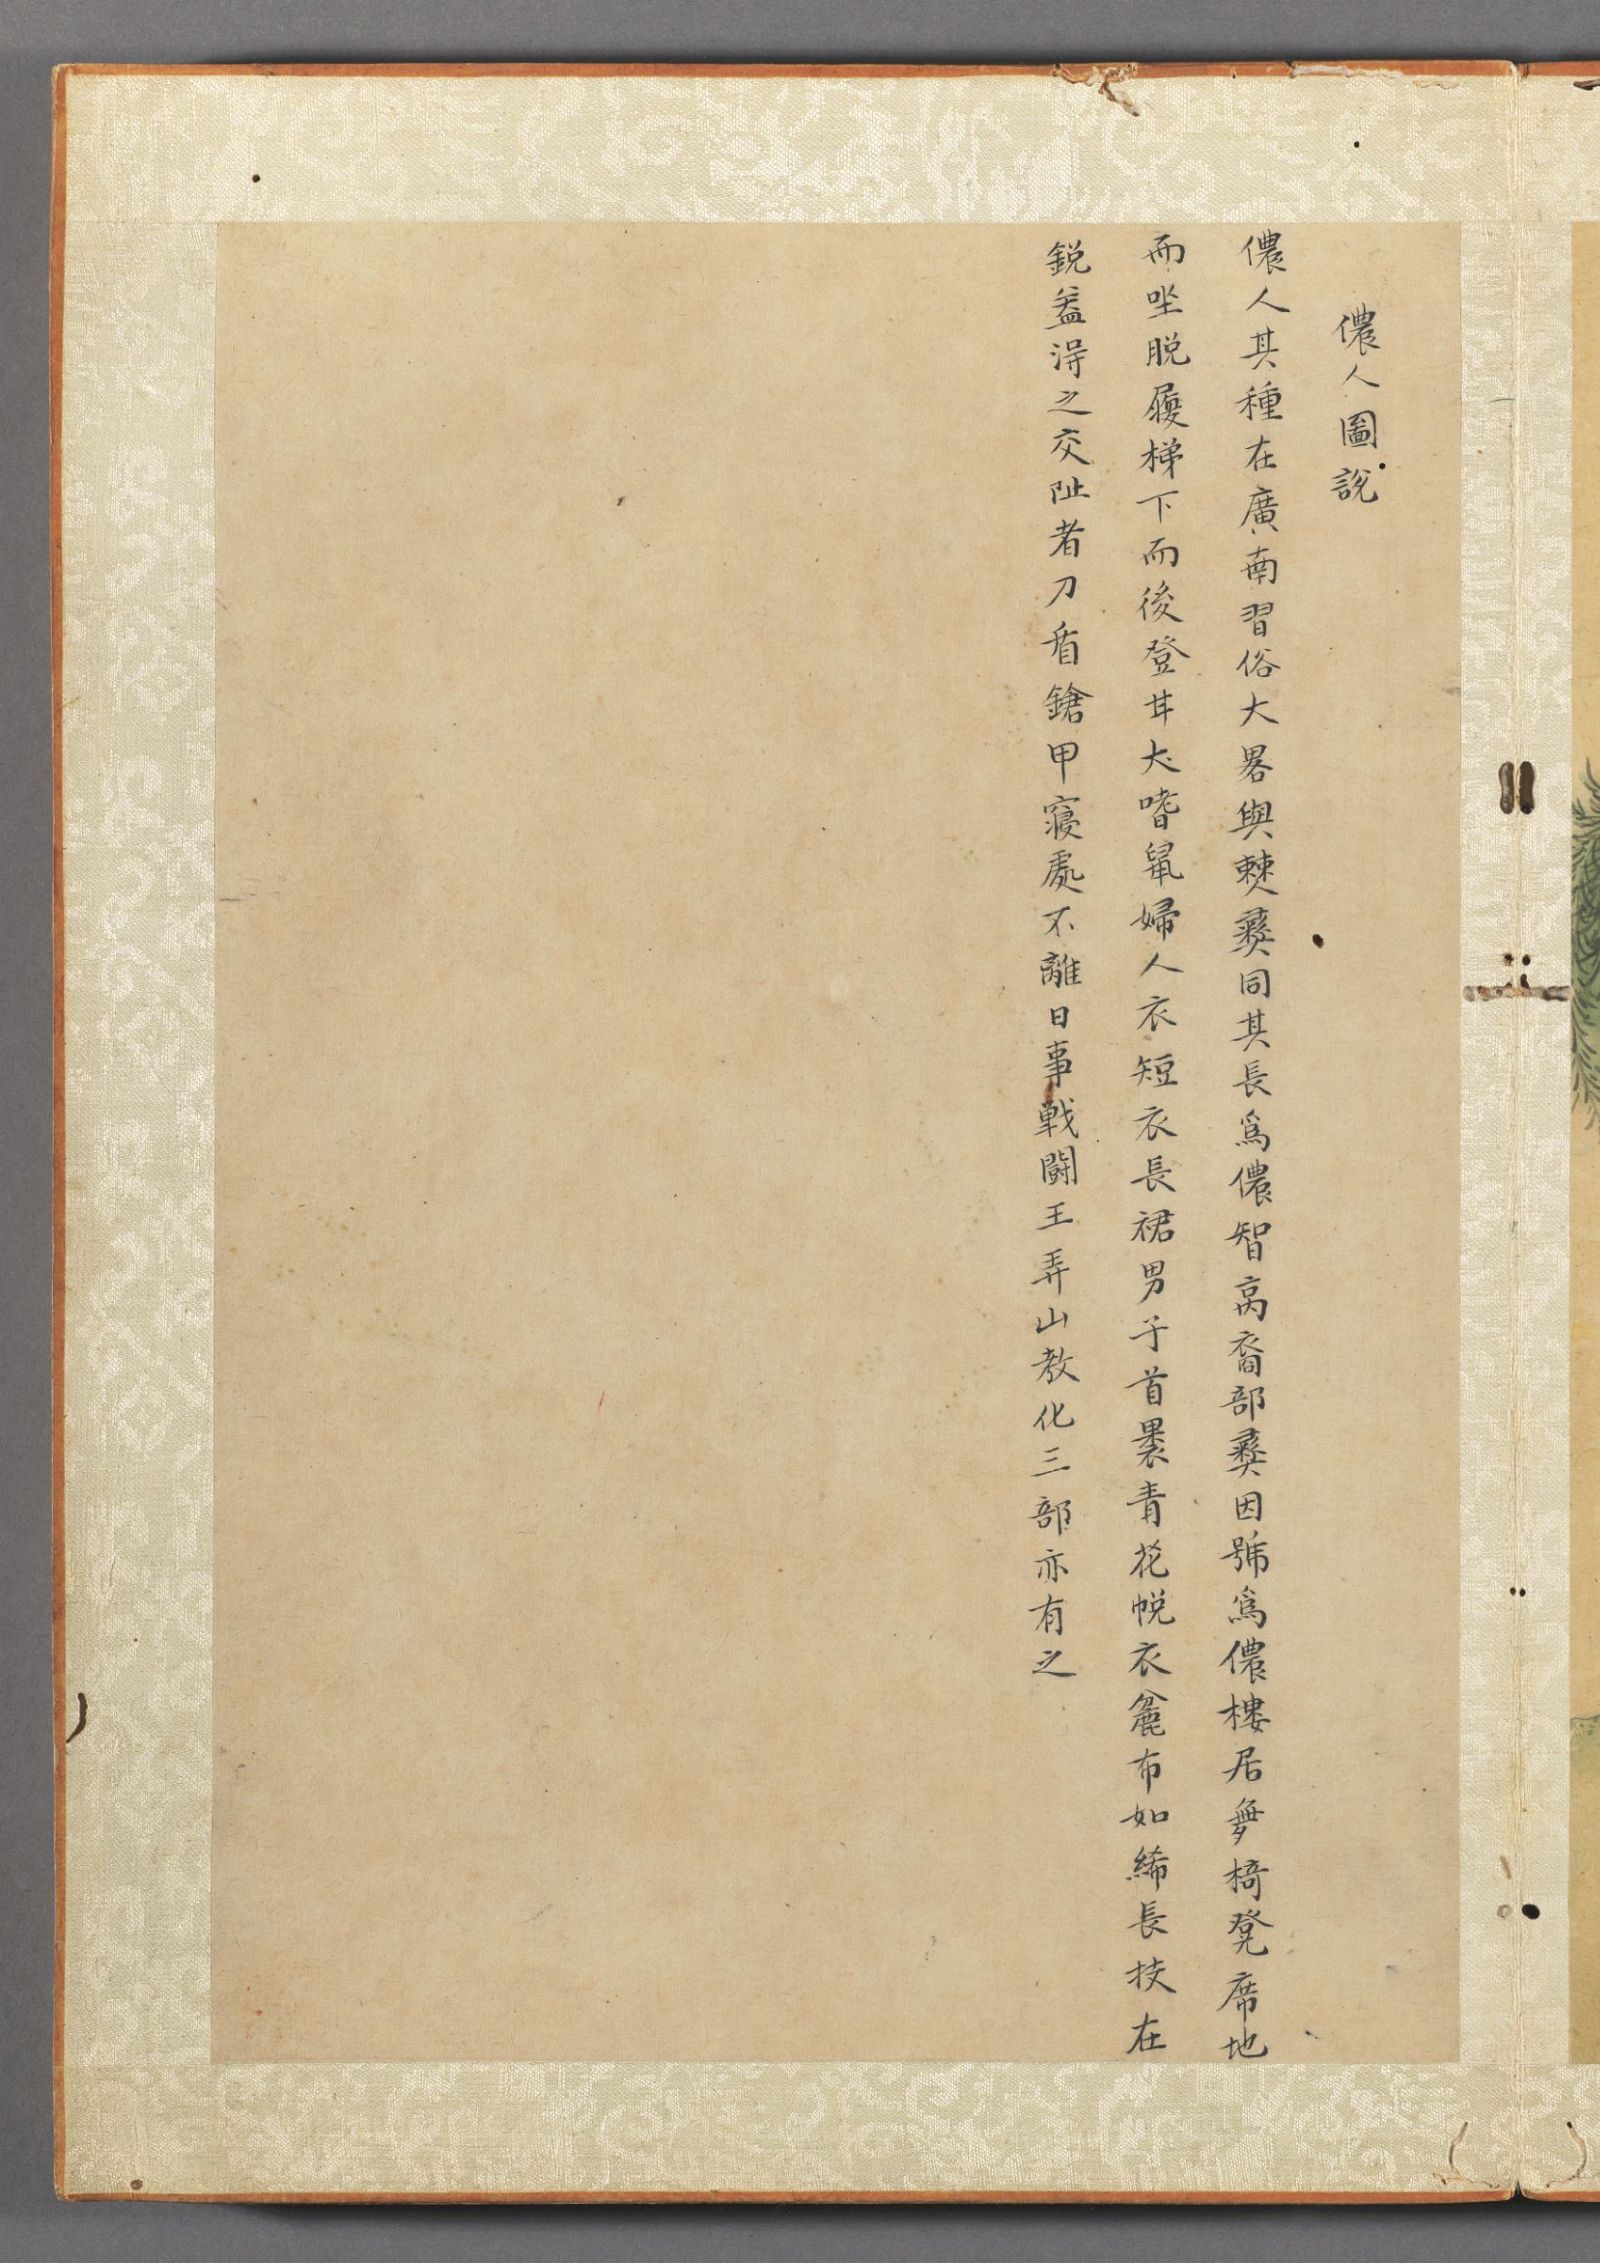 儂人圖說
儂人其種在廣南習俗大畧與僰彝同其長爲儂智高裔部彝因號爲儂樓居無椅凳席地
而坐脫履梯下而後登甘犬嗜鼠婦人衣短衣長裙男子首裹青花帨衣麄布如絺長技在
銳盖淂之交阯者刀盾鎗甲寢處不離日事戰鬪王弄山教化三部亦有之